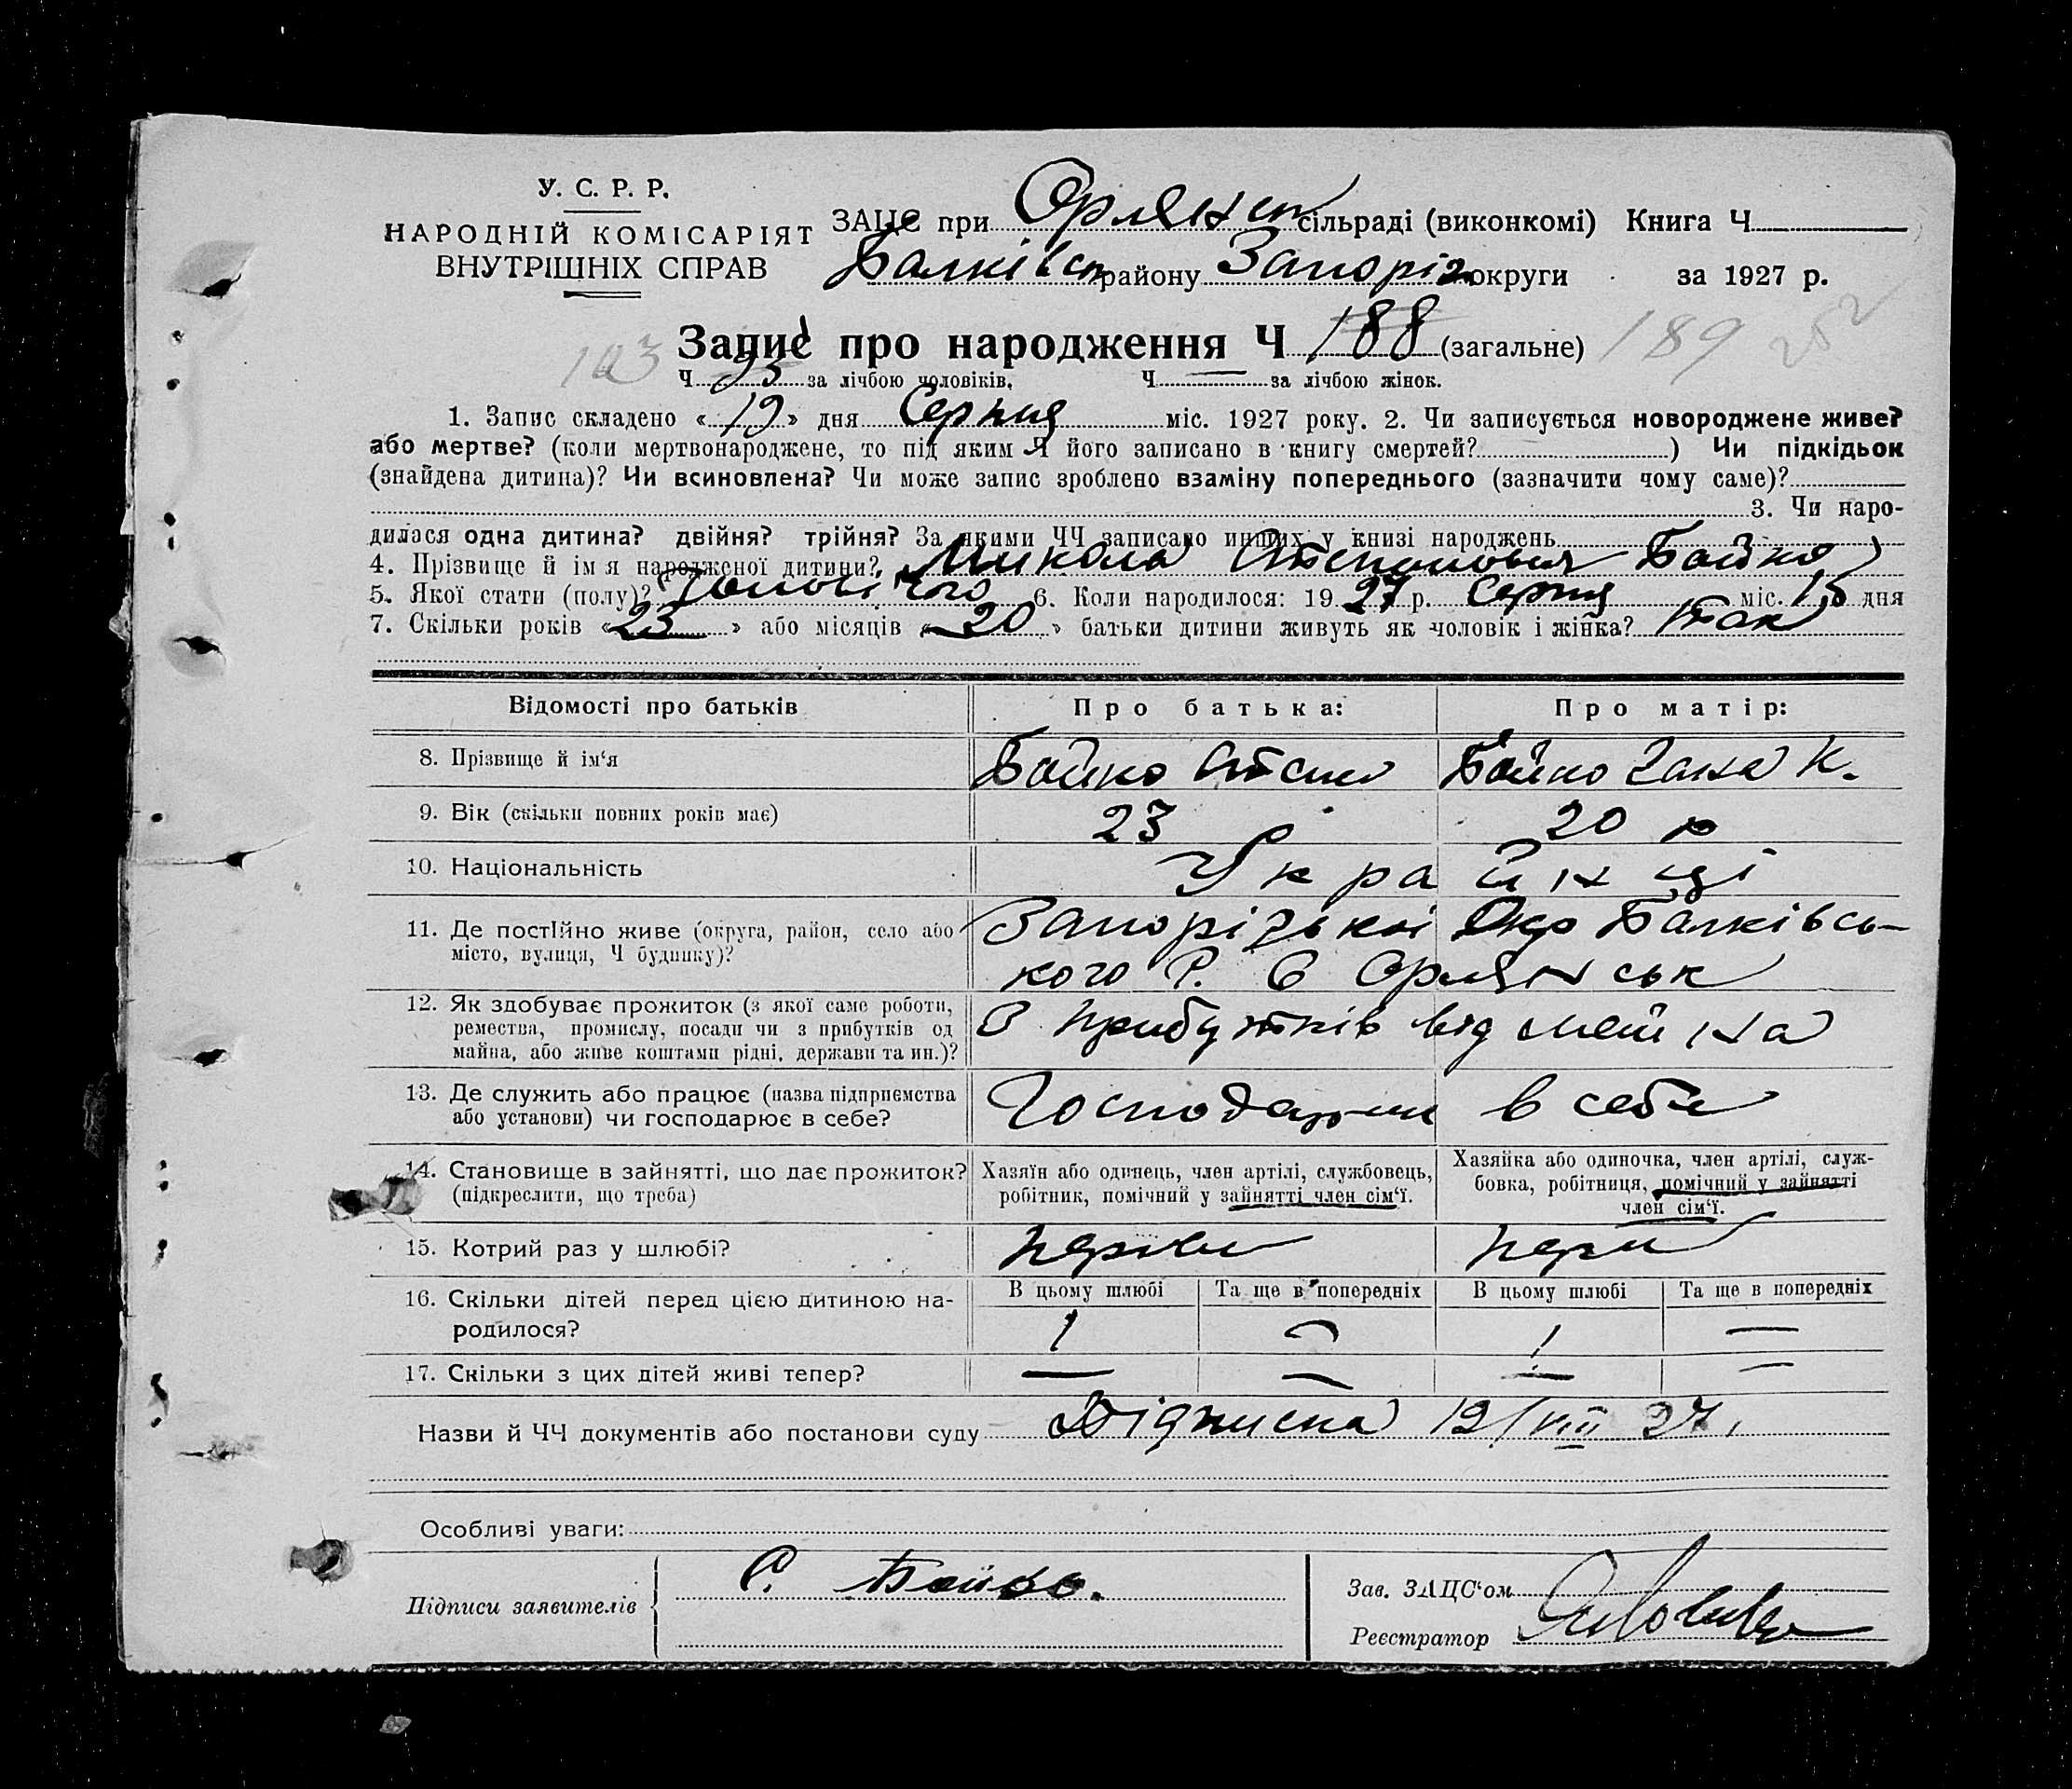 У. С. Р. Р.
НАРОДНІЙ КОМІСАРІЯТ
ВНУТРІШНІХ СПРАВ
ЗАЦС при Орлянсь сільраді (виконкомі) Книга Ч
Балківсь району Запоріз округи за 1927 р.
103 Запис про народження Ч 188 (загальне) 189
Ч 93 за лічбою чоловіків, Ч — за лічбою жінок.
1. Запис складено «19» дня Серпня міс. 1927 року. 2. Чи записується новороджене живе?
або мертве? (коли мертвонароджене, то під яким Я його записано в книгу смертей? ) Чи підкідьок
(знайдена дитина)? Чи всиновлена? Чи може запис зроблено взаміну попереднього (зазначити чому саме)?
3. Чи наро-
дилася одна дитина? двійня? трійня? За якими ЧЧ записано инших у книзі народжень
4. Прізвище й ім я народженої дитини? Микола Бойко
5. Якої стати (полу)? Чоловічого 6. Коли народилося: 1927 р. Серпня міс. 15 дня
7. Скільки років «23» або місяців «20» батьки дитини живуть як чоловік і жінка? так
Відомості про батьків Про батька: Про матір:
8. Прізвище й ім‘я Бойко Бойко Ганна К.
9. Вік (скільки повних років має) 23 р 20 р
10. Національність Українці
11. Де постІйно живе (округа, район, село або Запорізькоі Окр Балківсь-
місто, вулиця, Ч будинку)? кого Р. С Орлянськ
12. Як здобуває прожиток (з якої саме роботи, З прибутків від майна
ремества, промислу, посади чи з прибутків од
майна, або живе коштами рідні, держави та ин.)?
13. Де служить або працює (назва підприємства Господарює в себе
або установи) чи господарює в себе?
14. Становище в зайнятті, що дає прожиток? Хазяїн або одинець, член артілі, службовець, Хазяйка або одиночка, член артілі, служ-
(підкреслити, що треба) робітник, помічний у зайнятті член сім‘ї. бовка, робітниця, помічний у зайнятті
член сім‘ї.
15. Котрий раз у шлюбі? перший перш
16. Скільки дітей перед цією дитиною на- В цьому шлюбі Та ще в попередніх В цьому шлюбі Та ще в попередніх
родилося? 1 — 1 —
17. Скільки з цих дітей живі тепер? — — — —
Назви й ЧЧ документів або постанови суду Підписка 19/VIII 27.
Особливі уваги:
Підписи заявителів С. Бойко.
Зав. ЗАЦС‘ом
Реєстратор